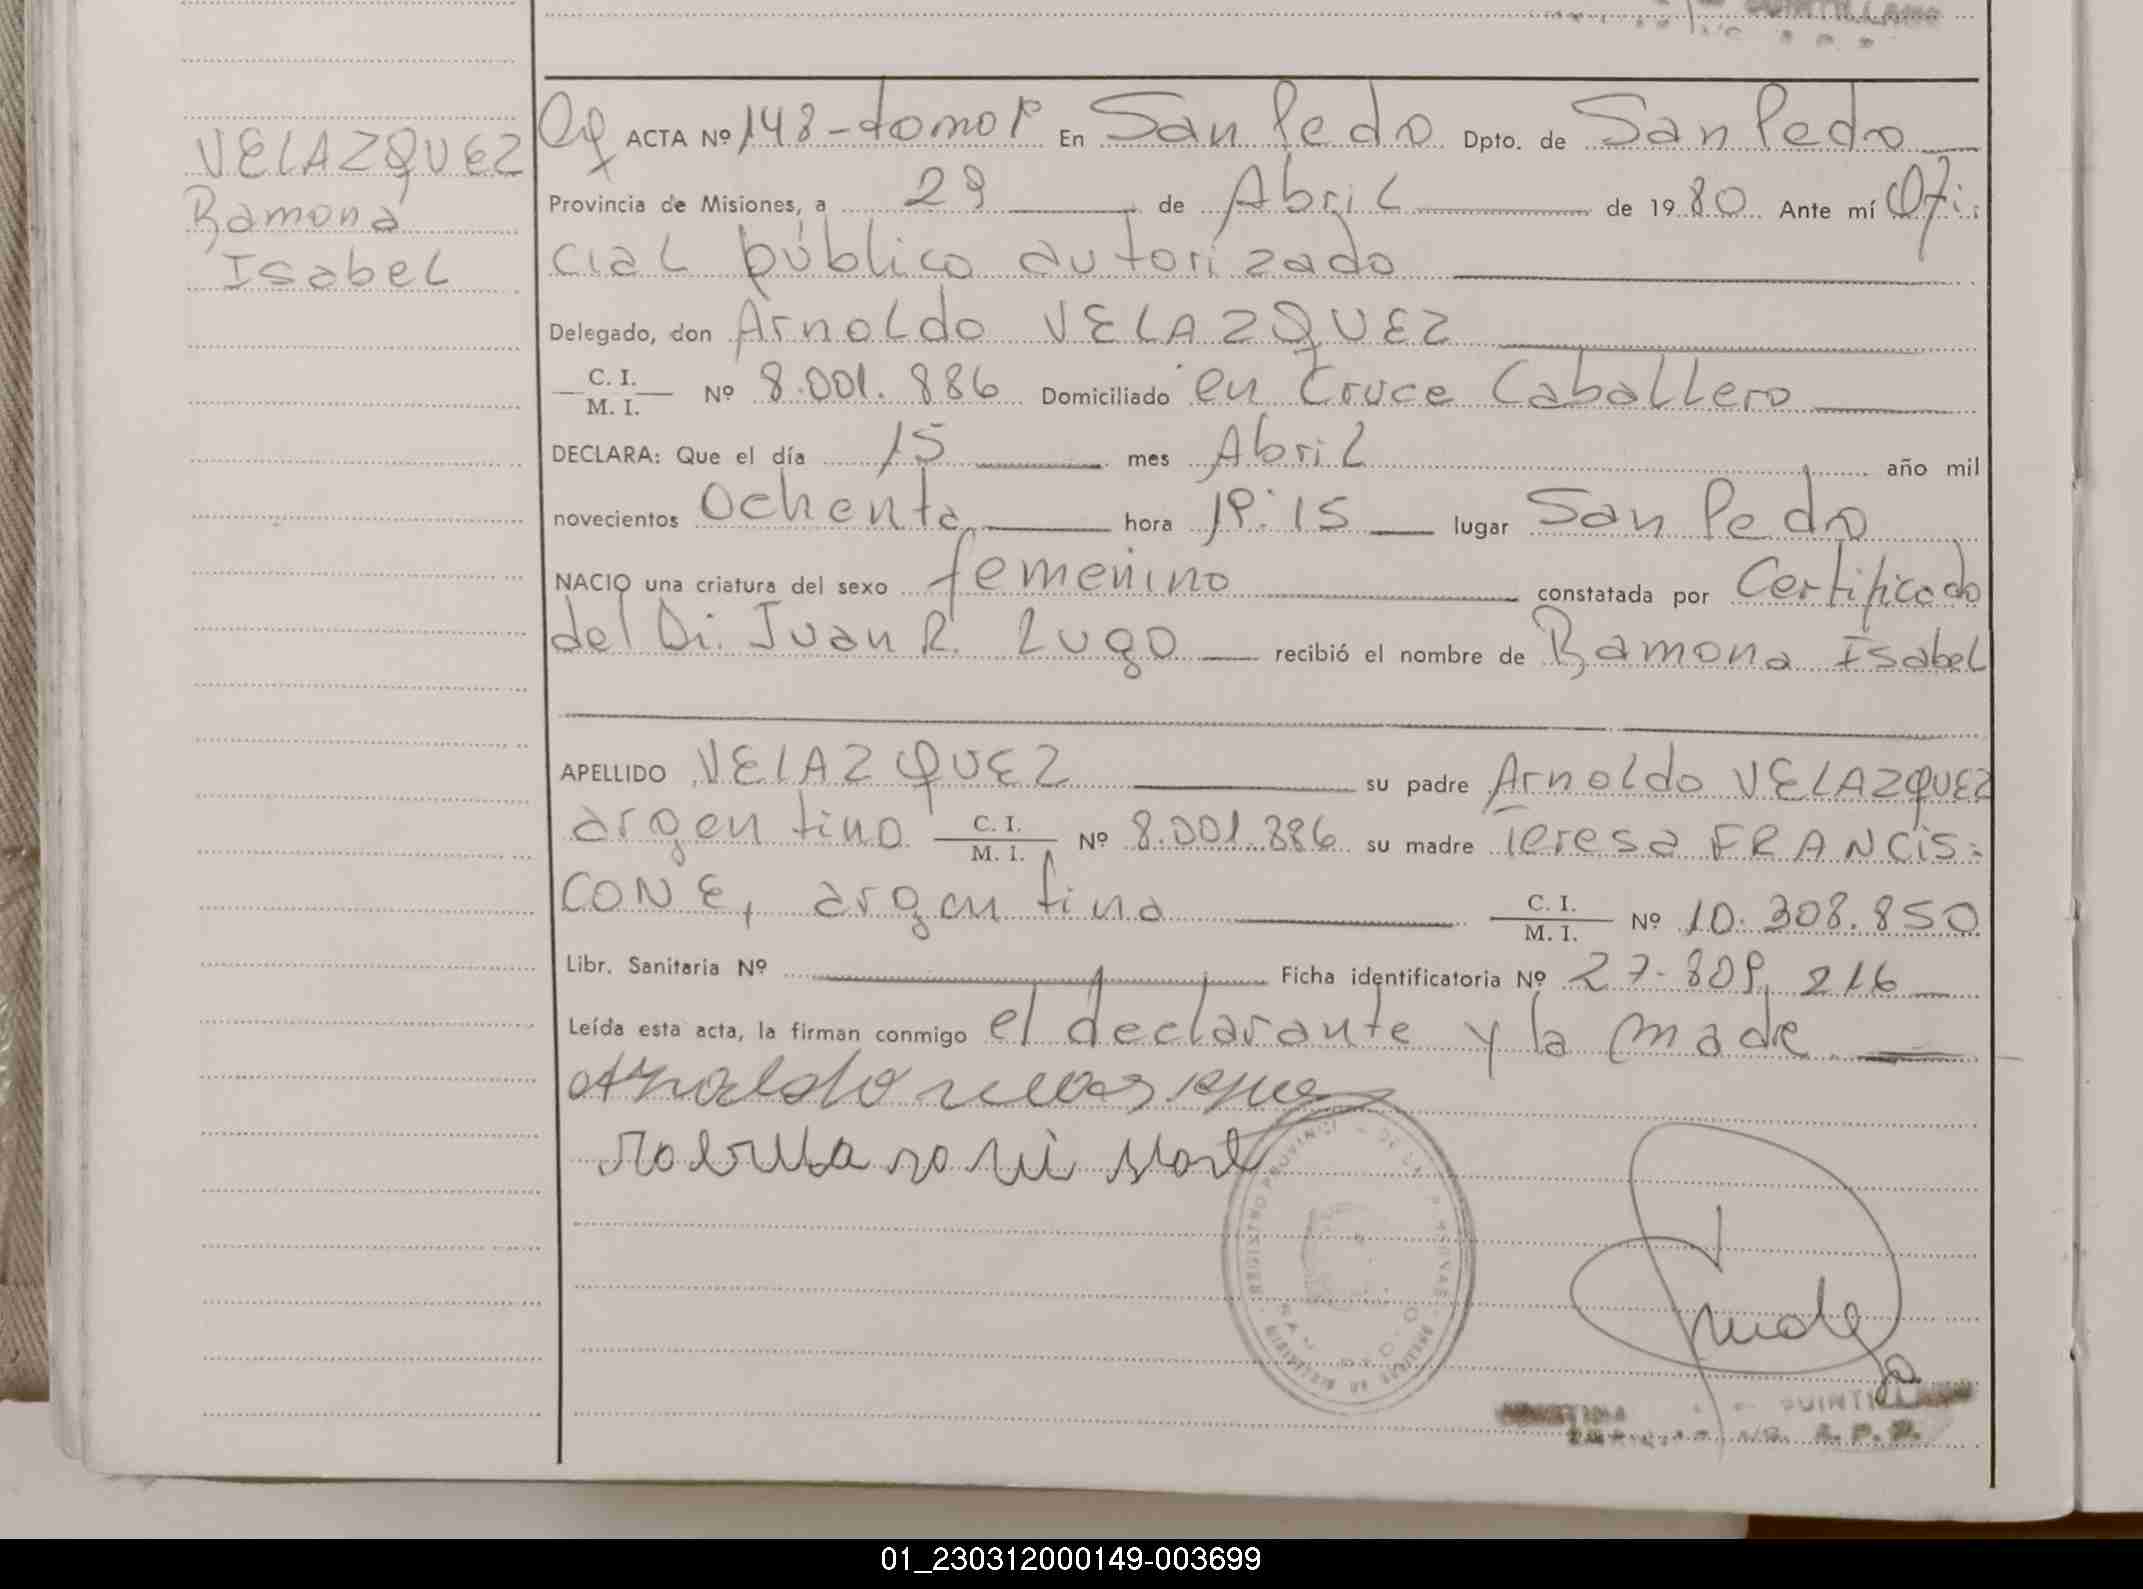 QUINTILLANO
VELAZQUEZ
Ramona
Isabel
ACTA Nº 148-tomo 1º En San Pedro Dpto. de San Pedro
Provincia de Misiones, a 29 de Abril de 1980 Ante mí Ofi:
cial público autorizado
Delegado, don Arnoldo VELAZQUEZ
C. I.
M. I. Nº 8.001.886 Domiciliado en Cruce Caballero
DECLARA: Que el día 15 mes Abril año mil
novecientos Ochenta hora 19:15 lugar San Pedro
NACIO una criatura del sexo femenino constatada por Certificado
del Dr. Juan R. Lugo recibió el nombre de Ramona Isabel
APELLIDO VELAZQUEZ su padre Arnoldo VELAZQUEZ
argentino C. I.
M. I. Nº 8.001.886 su madre Teresa FRANCIS:
CONE, argentina C. I.
M. I. Nº 10.308.850
Libr. Sanitaria Nº Ficha identificatoria Nº 27-809.216
Leída esta acta, la firman conmigo el declarante y la madre
REGISTRO PROVINCIAL DE LAS PERSONAS
QUINTILLANO
R. P. P.
01_230312000149-003699